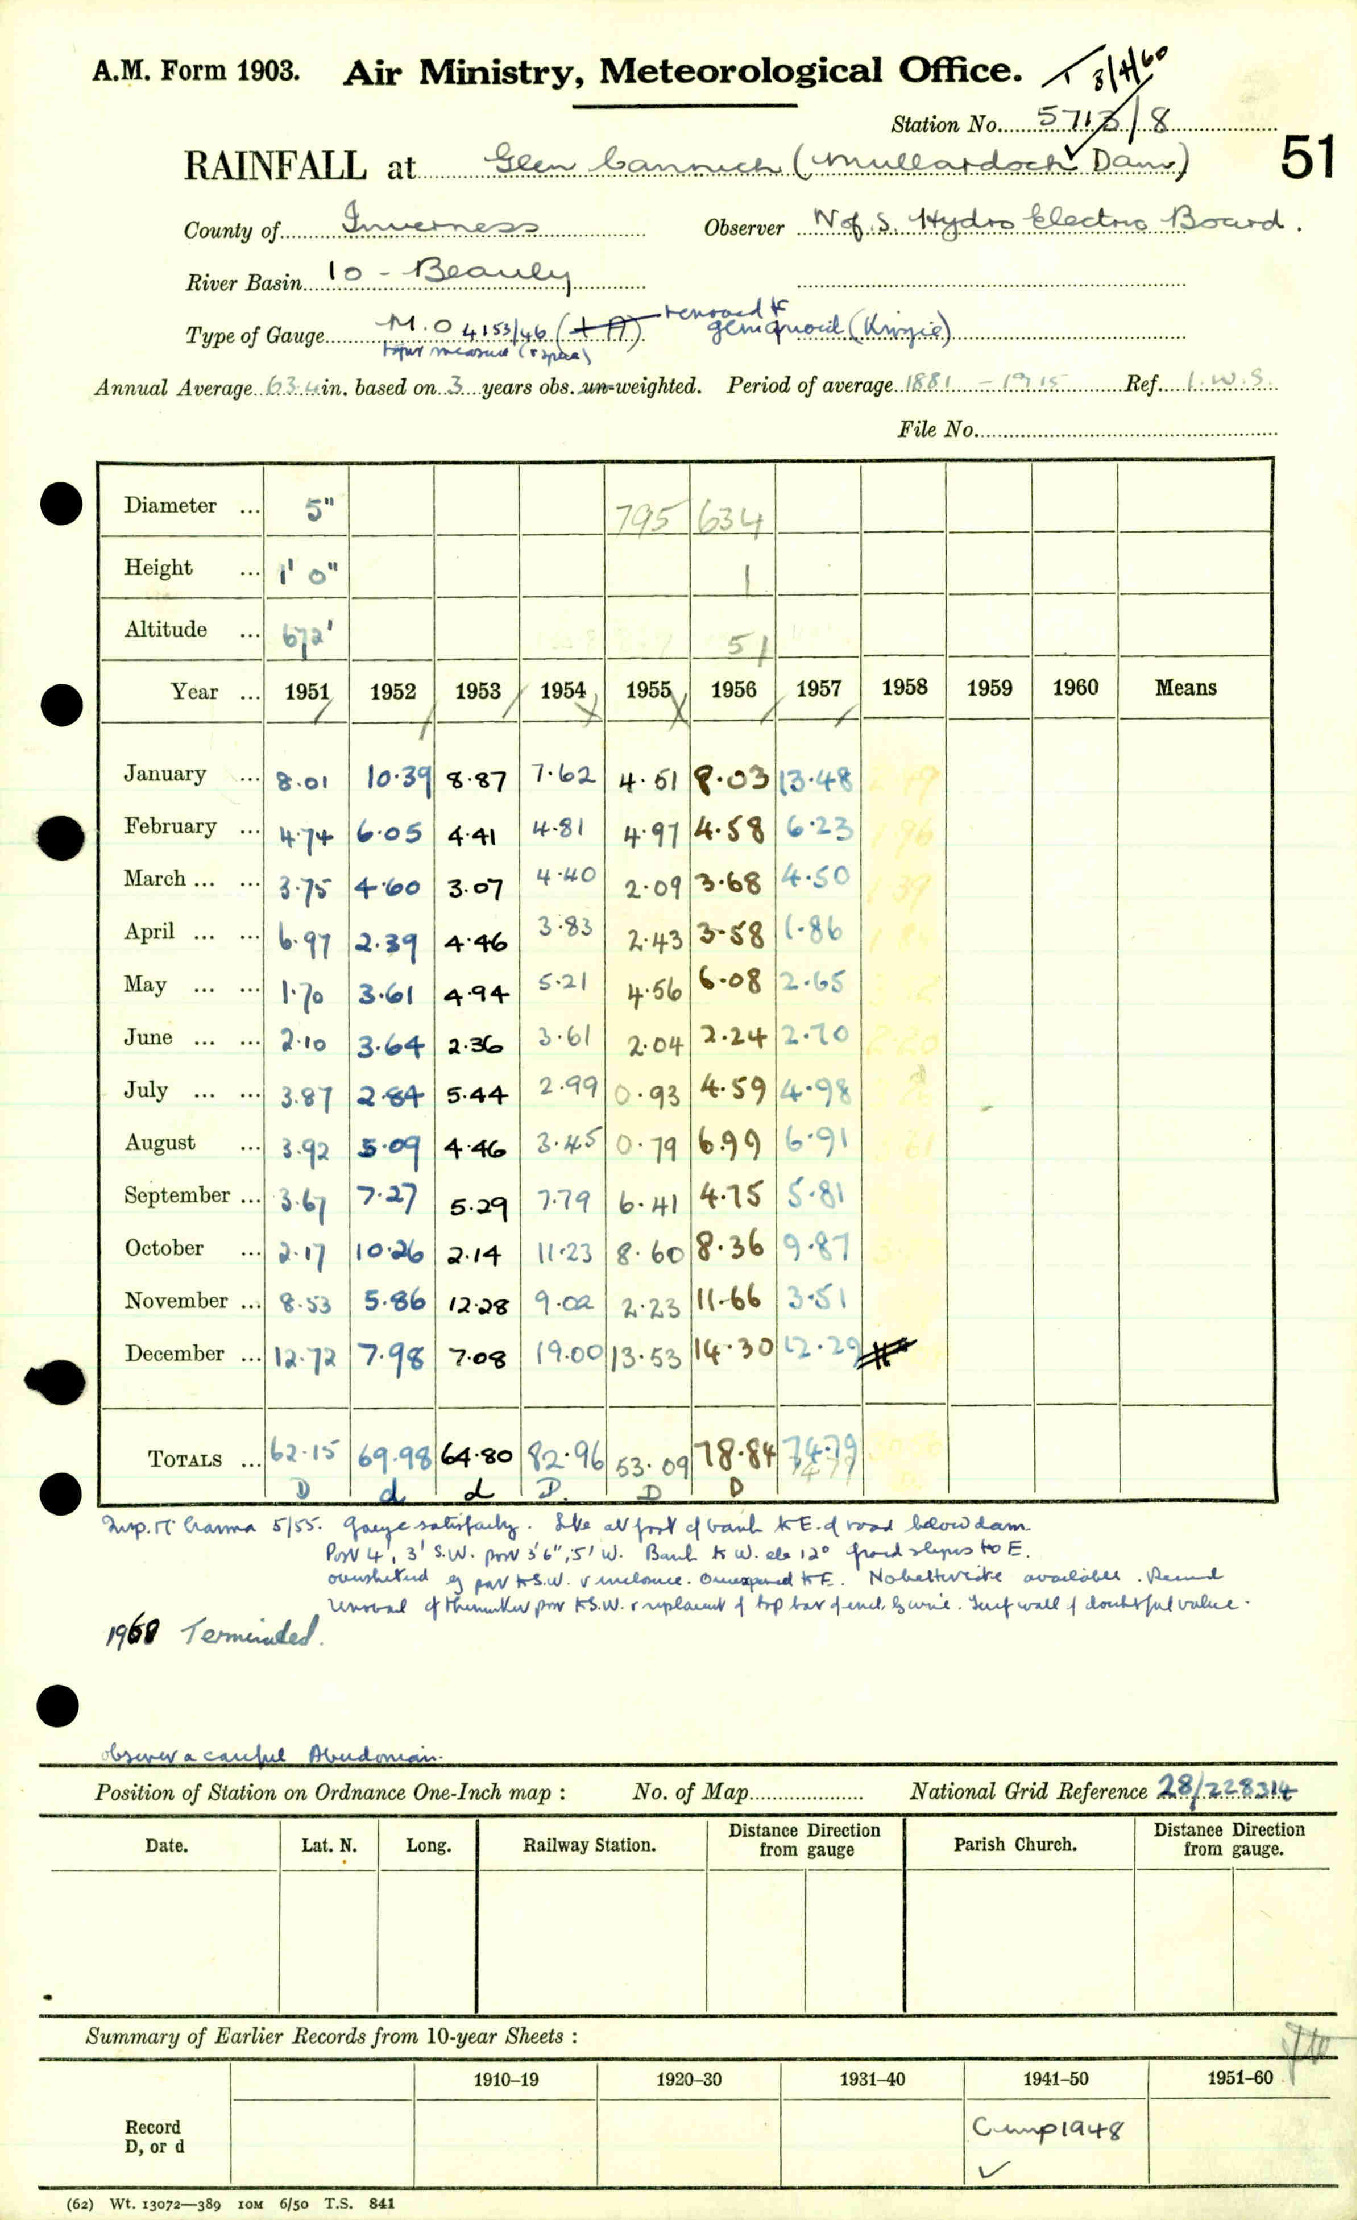 A.M. Form 1903. Air Ministry, Meteorological Office. T 8/4/60
Station No. 5713/8
51
RAINFALL at Glen Cannich (Mullardoch Dam)
County of Inverness Observer N of S. Hydro Electric Board.
River Basin 10 - Beauly
Type of Gauge M.O 4153/46 (+ A)
taper measure
Annual Average 63.4 in. based on 3 years obs. un-weighted. Period of average 1881 - 1915 Ref. I.W.S.
File No.
Diameter ... 5" 795 634
Height ... 1' 0" 1
Altitude ... 672' 51
Year ... 1951 1952 1953 1954 1955 1956 1957 1958 1959 1960 Means
January ... 8.01 10.39 8.87 7.62 4.51 8.03 13.48
February ... 4.74 6.05 4.41 4.81 4.97 4.58 6.23
March ... ... 3.75 4.60 3.07 4.40 2.09 3.68 4.50
April ... ... 6.97 2.39 4.46 3.83 2.43 3.58 1.86
May ... ... 1.70 3.61 4.94 5.21 4.56 6.08 2.65
June ... ... 2.10 3.64 2.36 3.61 2.04 2.24 2.70
July ... ... 3.87 2.84 5.44 2.99 0.93 4.59 4.98
August ... 3.92 5.09 4.46 3.45 0.79 6.99 6.91
September ... 3.67 7.27 5.29 7.79 6.41 4.75 5.81
October ... 2.17 10.26 2.14 11.23 8.60 8.36 9.87
November ... 8.53 5.86 12.28 9.02 2.23 11.66 3.51
December ... 12.72 7.98 7.08 19.00 13.53 14.30 12.29
TOTALS ... 62.15 69.98 64.80 82.96 53.09 78.84 74.79
D d d D. D D
Insp. 5/55. Gauge satisfactory. Site at foot of bank to E. of road below dam
Post 4', 3' S.W. post 3'6", 5' W. Bank to W. ele 12° ground slopes to E.
No better site available.
wall of doubtful value.
1960 Terminated.
observer a careful Aberdonian.
Position of Station on Ordnance One-Inch map : No. of Map National Grid Reference 28/228314
Date. Lat. N. Long. Railway Station. Distance Direction from gauge Parish Church. Distance Direction from gauge.
Summary of Earlier Records from 10-year Sheets :
1910–19 1920–30 1931–40 1941–50 1951–60
Record
D, or d
1948
(62) Wt. 13072—389 10M 6/50 T.S. 841